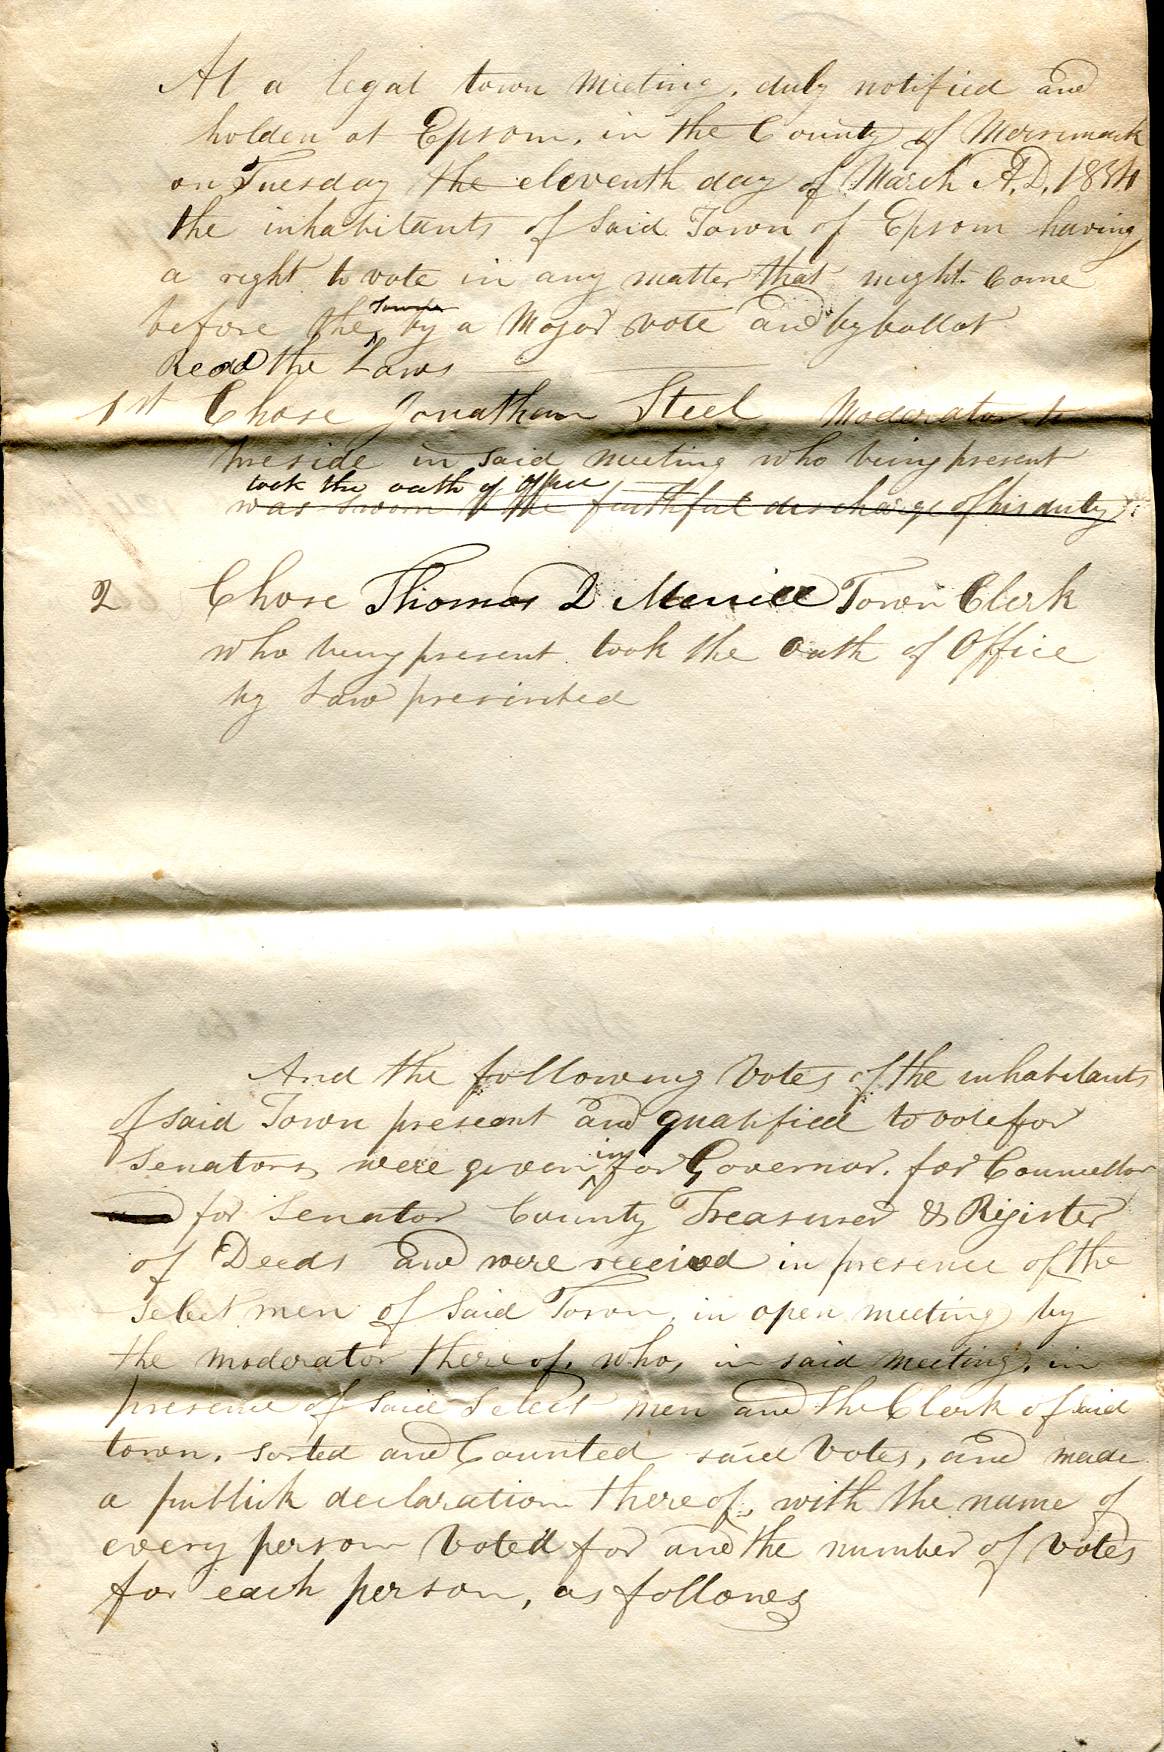 At a legal town meeting, duly notified and
holden at Epsom, in the County of Merrimack
on Tuesday the eleventh day of March A.D, 1834
the inhabitants of said Town of Epsom having
a right to vote in any matter that might Come
before the by a Major vote and by ballot
Read the Laws
1st Chose Jonathan Steel Moderator to
preside in said meeting who being present
took the oath of office
was sworn to the faithful discharge of his duty
2 Chose Thomas D Merrill Town Clerk
who being present took the Oath of Office
by Law
And the following Votes of the inhabitants
of said Town present and qualified to vote for
Senators, were given in for Governor, for Councellor
for Senator County Treasurer & Register
of Deeds and were received in presence of the
Select men of Said Town, in open meeting by
the moderator thereof, who, in said meeting, in
presence of said Select men and the Clerk of said
town, sorted and Counted said Votes, and made
a publick declaration thereof, with the name of
every person Voted for and the number of Votes
for each person, as follows